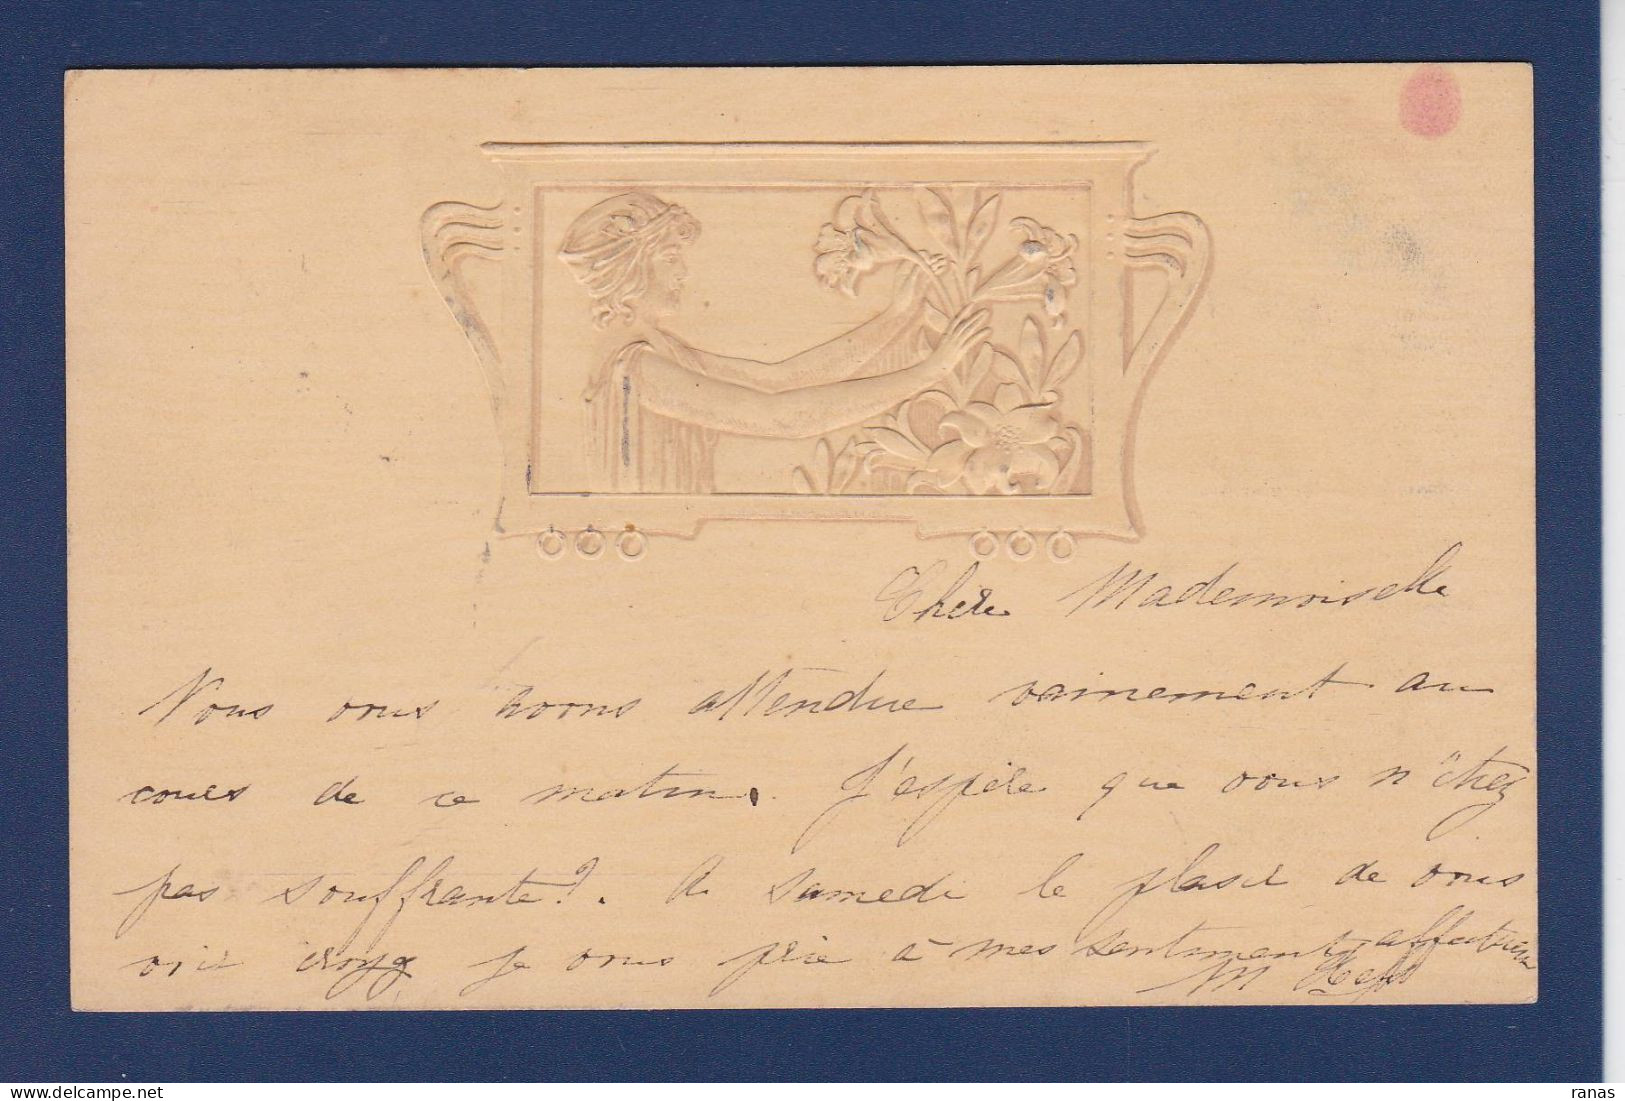 Chère Mademoiselle
Nous vous avons attendue vainement au
cours de ce matin. J'espère que vous n'êtez
pas souffrante?. A samedi le plasir de vous
voir croyez je vous prie à mes sentiments affectueux
M
ranas